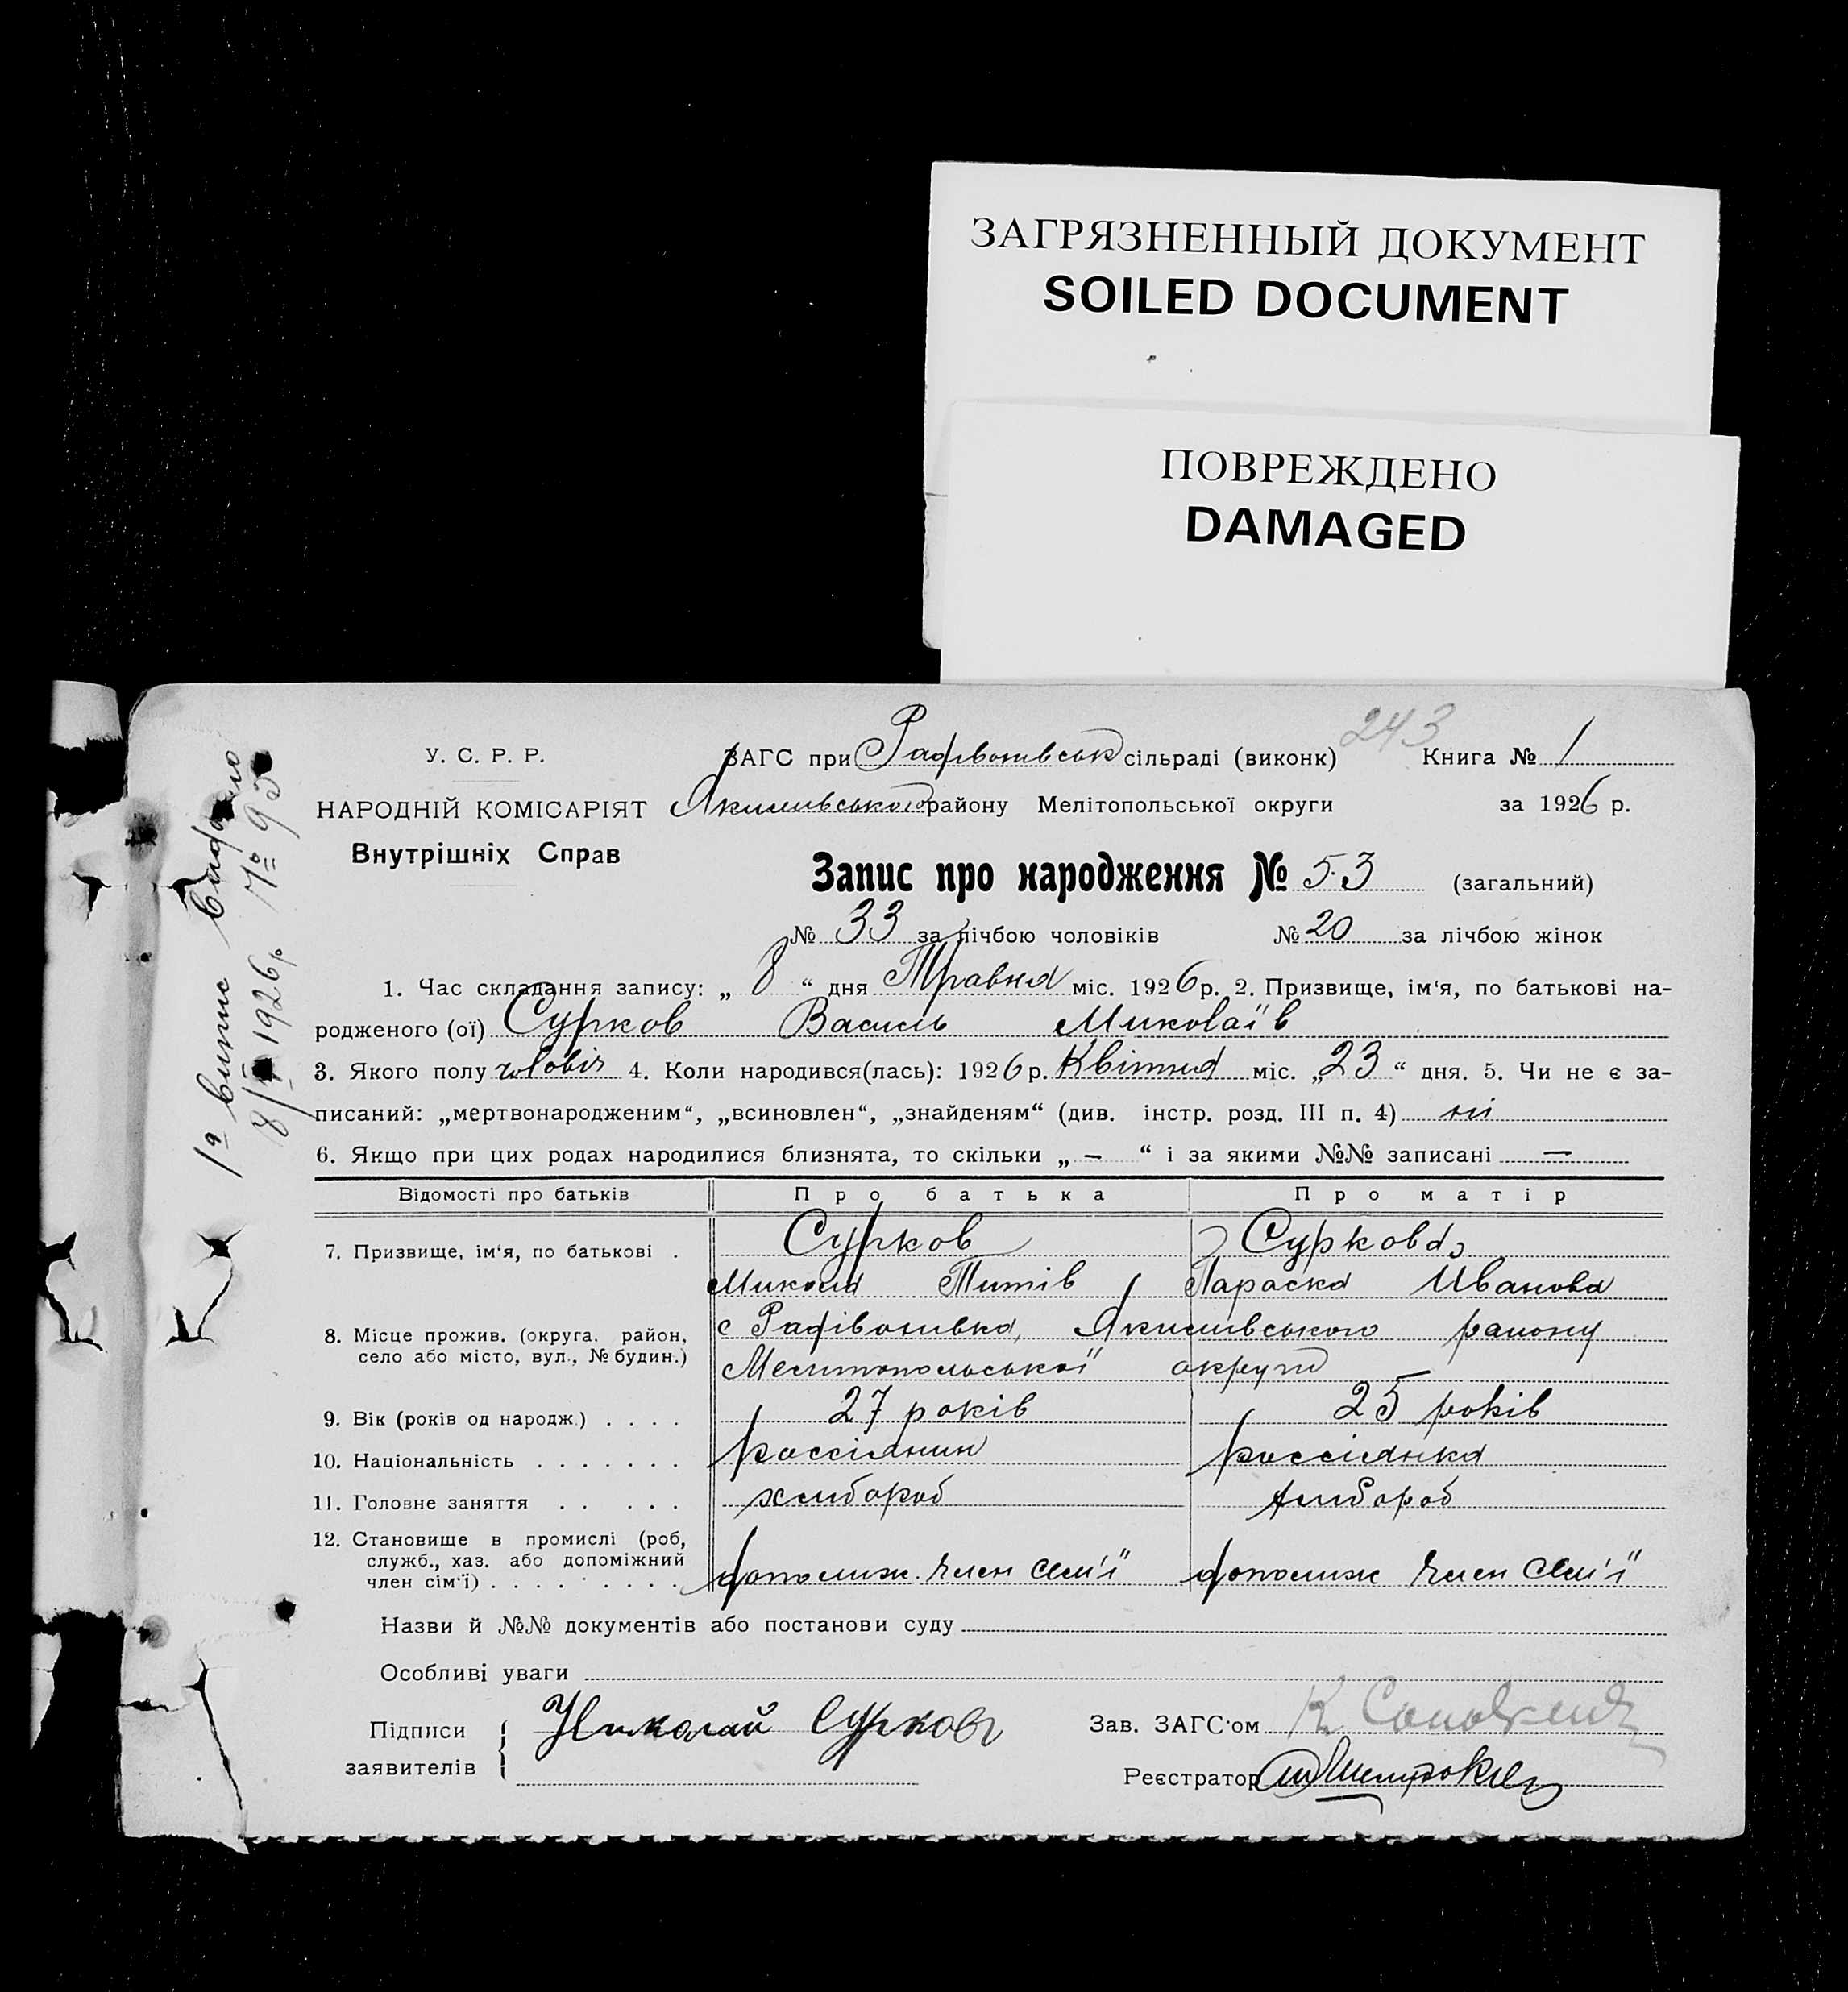 ЗАГРЯЗНЕННЫЙ ДОКУМЕНТ
SOILED DOCUMENT
ПОВРЕЖДЕНО
DAMAGED
243
У. С. Р. Р.
НАРОДНІЙ КОМІСАРІЯТ
Внутрішніх Справ
ЗАГС при Радівонівськ сільраді (виконк) Книга № 1
Якимівського району Мелітопольської округи за 1926 р.
Запис про народження № 53 (загальний)
№ 33 за лічбою чоловіків № 20 за лічбою жінок
1. Час складання запису: „ 8 “ дня Травня міс. 1926 р. 2. Призвище, ім‘я, по батькові на-
родженого (ої) Сурков Василь Миколаїв
3. Якого полу чловіч 4. Коли народився(лась): 1926 р. Квітня міс. „23 “ дня. 5. Чи не є за-
писаний: „мертвонародженим“, „всиновлен“, „знайденям“ (див. інстр. розд. III п. 4) ні
6. Якщо при цих родах народилися близнята, то скільки „ — “ і за якими №№ записані —
Відомості про батьків Про батька Про матір
7. Призвище, ім‘я, по батькові . Сурков Суркова
Микола Титів Параска Иванова
8. Місце прожив. (округа, район, село або місто, вул., № будин.) с Радівонивка, Якимівського району
Мелитопольської округи
9. Вік (років од народж.) . . . . 27 років 25 років
10. Національність . . . . . . . россіянин россіянка
11. Головне заняття . . . . . хлибороб хлибороб
12. Становище в промислі (роб, служб., хаз. або допоміжний член сім‘ї) . . . . . . . . . допомиж. член сем'ї допомиж член сем'ї
Назви й №№ документів або постанови суду
Особливі уваги
Підписи заявителів Николай Сурковъ
Зав. ЗАГС‘ом
Реєстратор
1а випис видано
8/V 1926 р № 93